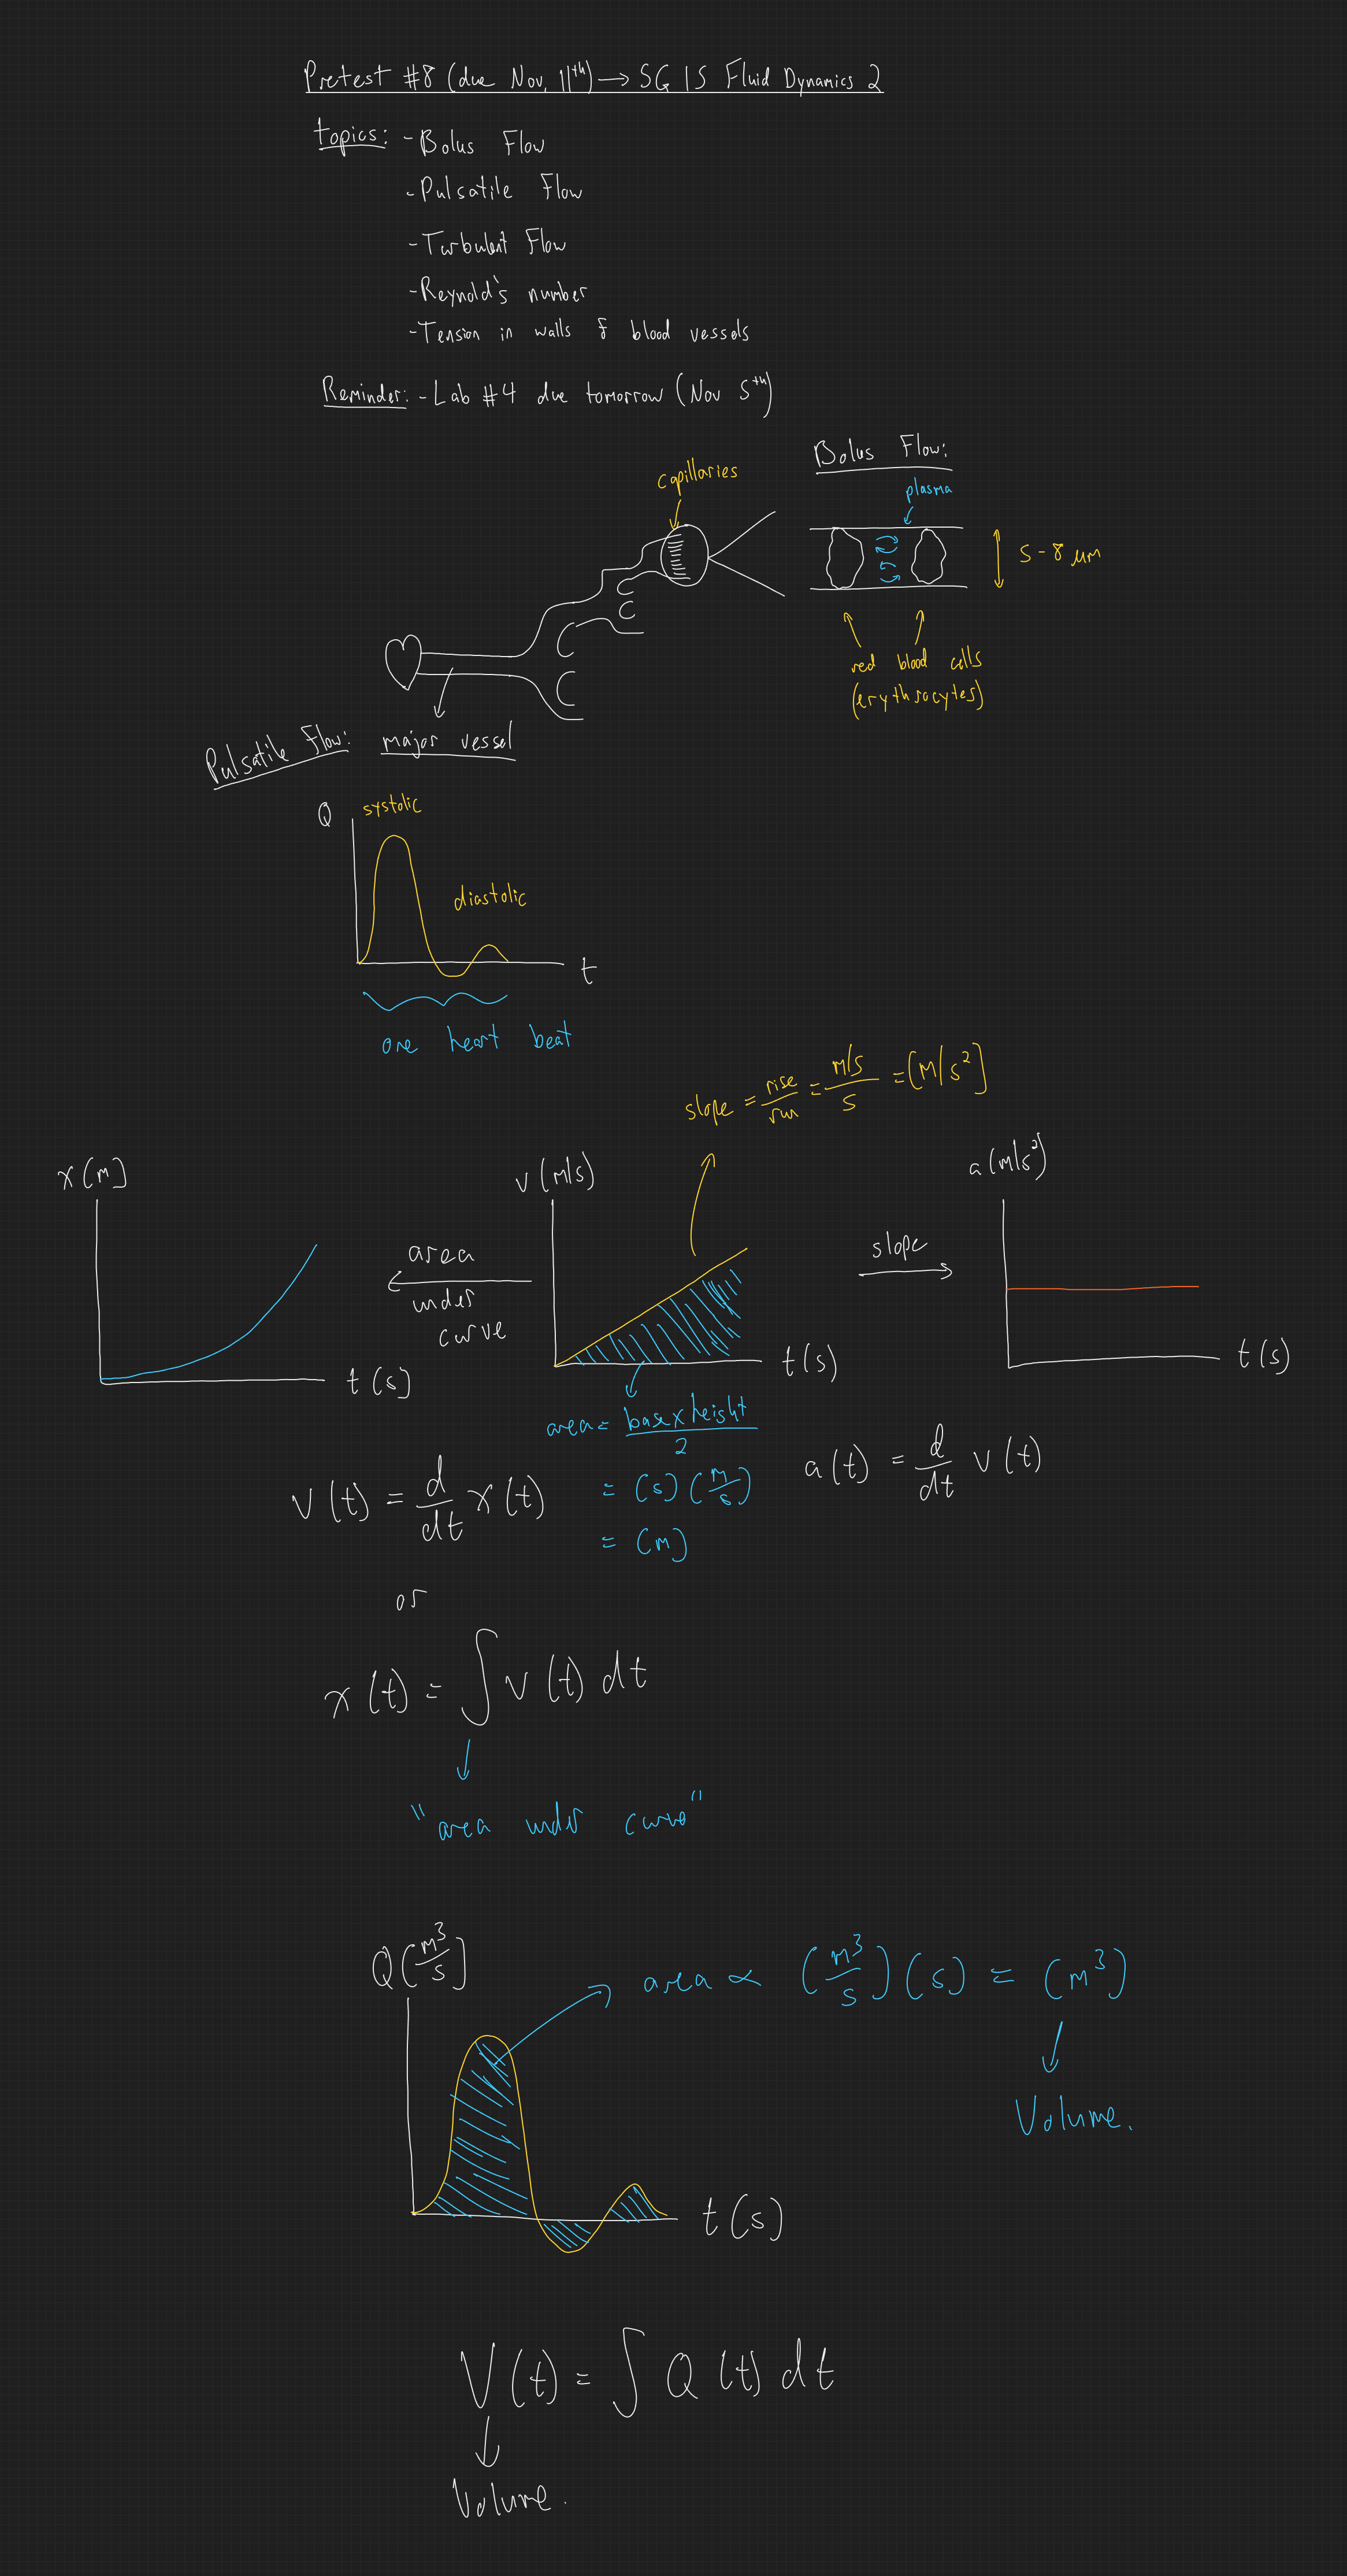 Pretest #8 (due Nov. 11th) → SG 15 Fluid Dynamics 2
topics: - Bolus Flow
- Pulsatile Flow
- Turbulent Flow
- Reynold's number
- Tension in walls of blood vessels
Reminder: - Lab #4 due tomorrow (Nov 5th)
capillaries
Bolus Flow:
plasma
5-8 μm
red blood cells
(erythrocytes)
Pulsatile Flow: major vessel
Q
systolic
diastolic
t
one heart beat
slope = rise/run = m/s/s = [m/s²]
x (m)
t (s)
area
under
curve
v (m/s)
t (s)
slope
a (m/s²)
t (s)
area = base x height / 2
= (s) (m/s)
= (m)
v (t) = d/dt x (t)
a (t) = d/dt v (t)
or
x (t) = ∫ v (t) dt
"area under curve"
Q (m³/s)
area ∝ (m³/s) (s) = (m³)
Volume.
t (s)
V (t) = ∫ Q (t) dt
Volume.